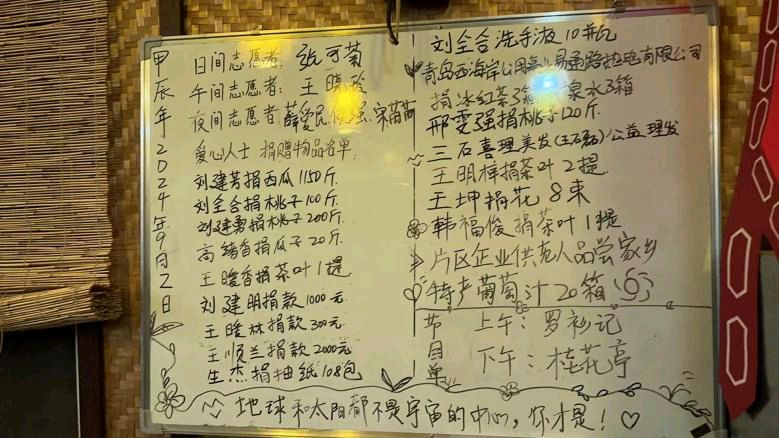 甲辰年2024年9月2日
日间志愿者: 张可菊
午间志愿者: 王晓玲
夜间志愿者: 薛爱民 强 宋苗苗
爱心人士 捐赠物品名单:
刘建芳捐西瓜1150斤.
刘全合捐桃子100斤.
刘建勇捐桃子200斤.
高绪香捐瓜子20斤.
王暖香捐茶叶1提
刘建明捐款1000元
王暖林捐款300元.
王顺兰捐款2000元
生杰捐抽纸108包
刘全合洗手液10瓶
青岛西海岸公用 易通路热电有限公司
捐冰红茶3箱 泉水3箱
邢雯强捐桃子120斤.
三石喜理美发(王石磊)公益理发
王明梓捐茶叶2提
王坤捐花8束
韩福俊捐茶叶1提
片区企业供 人品尝家乡
特产葡萄汁20箱
节目单
上午: 罗衫记
下午: 桂花亭
地球和太阳都不是宇宙的中心,你才是!